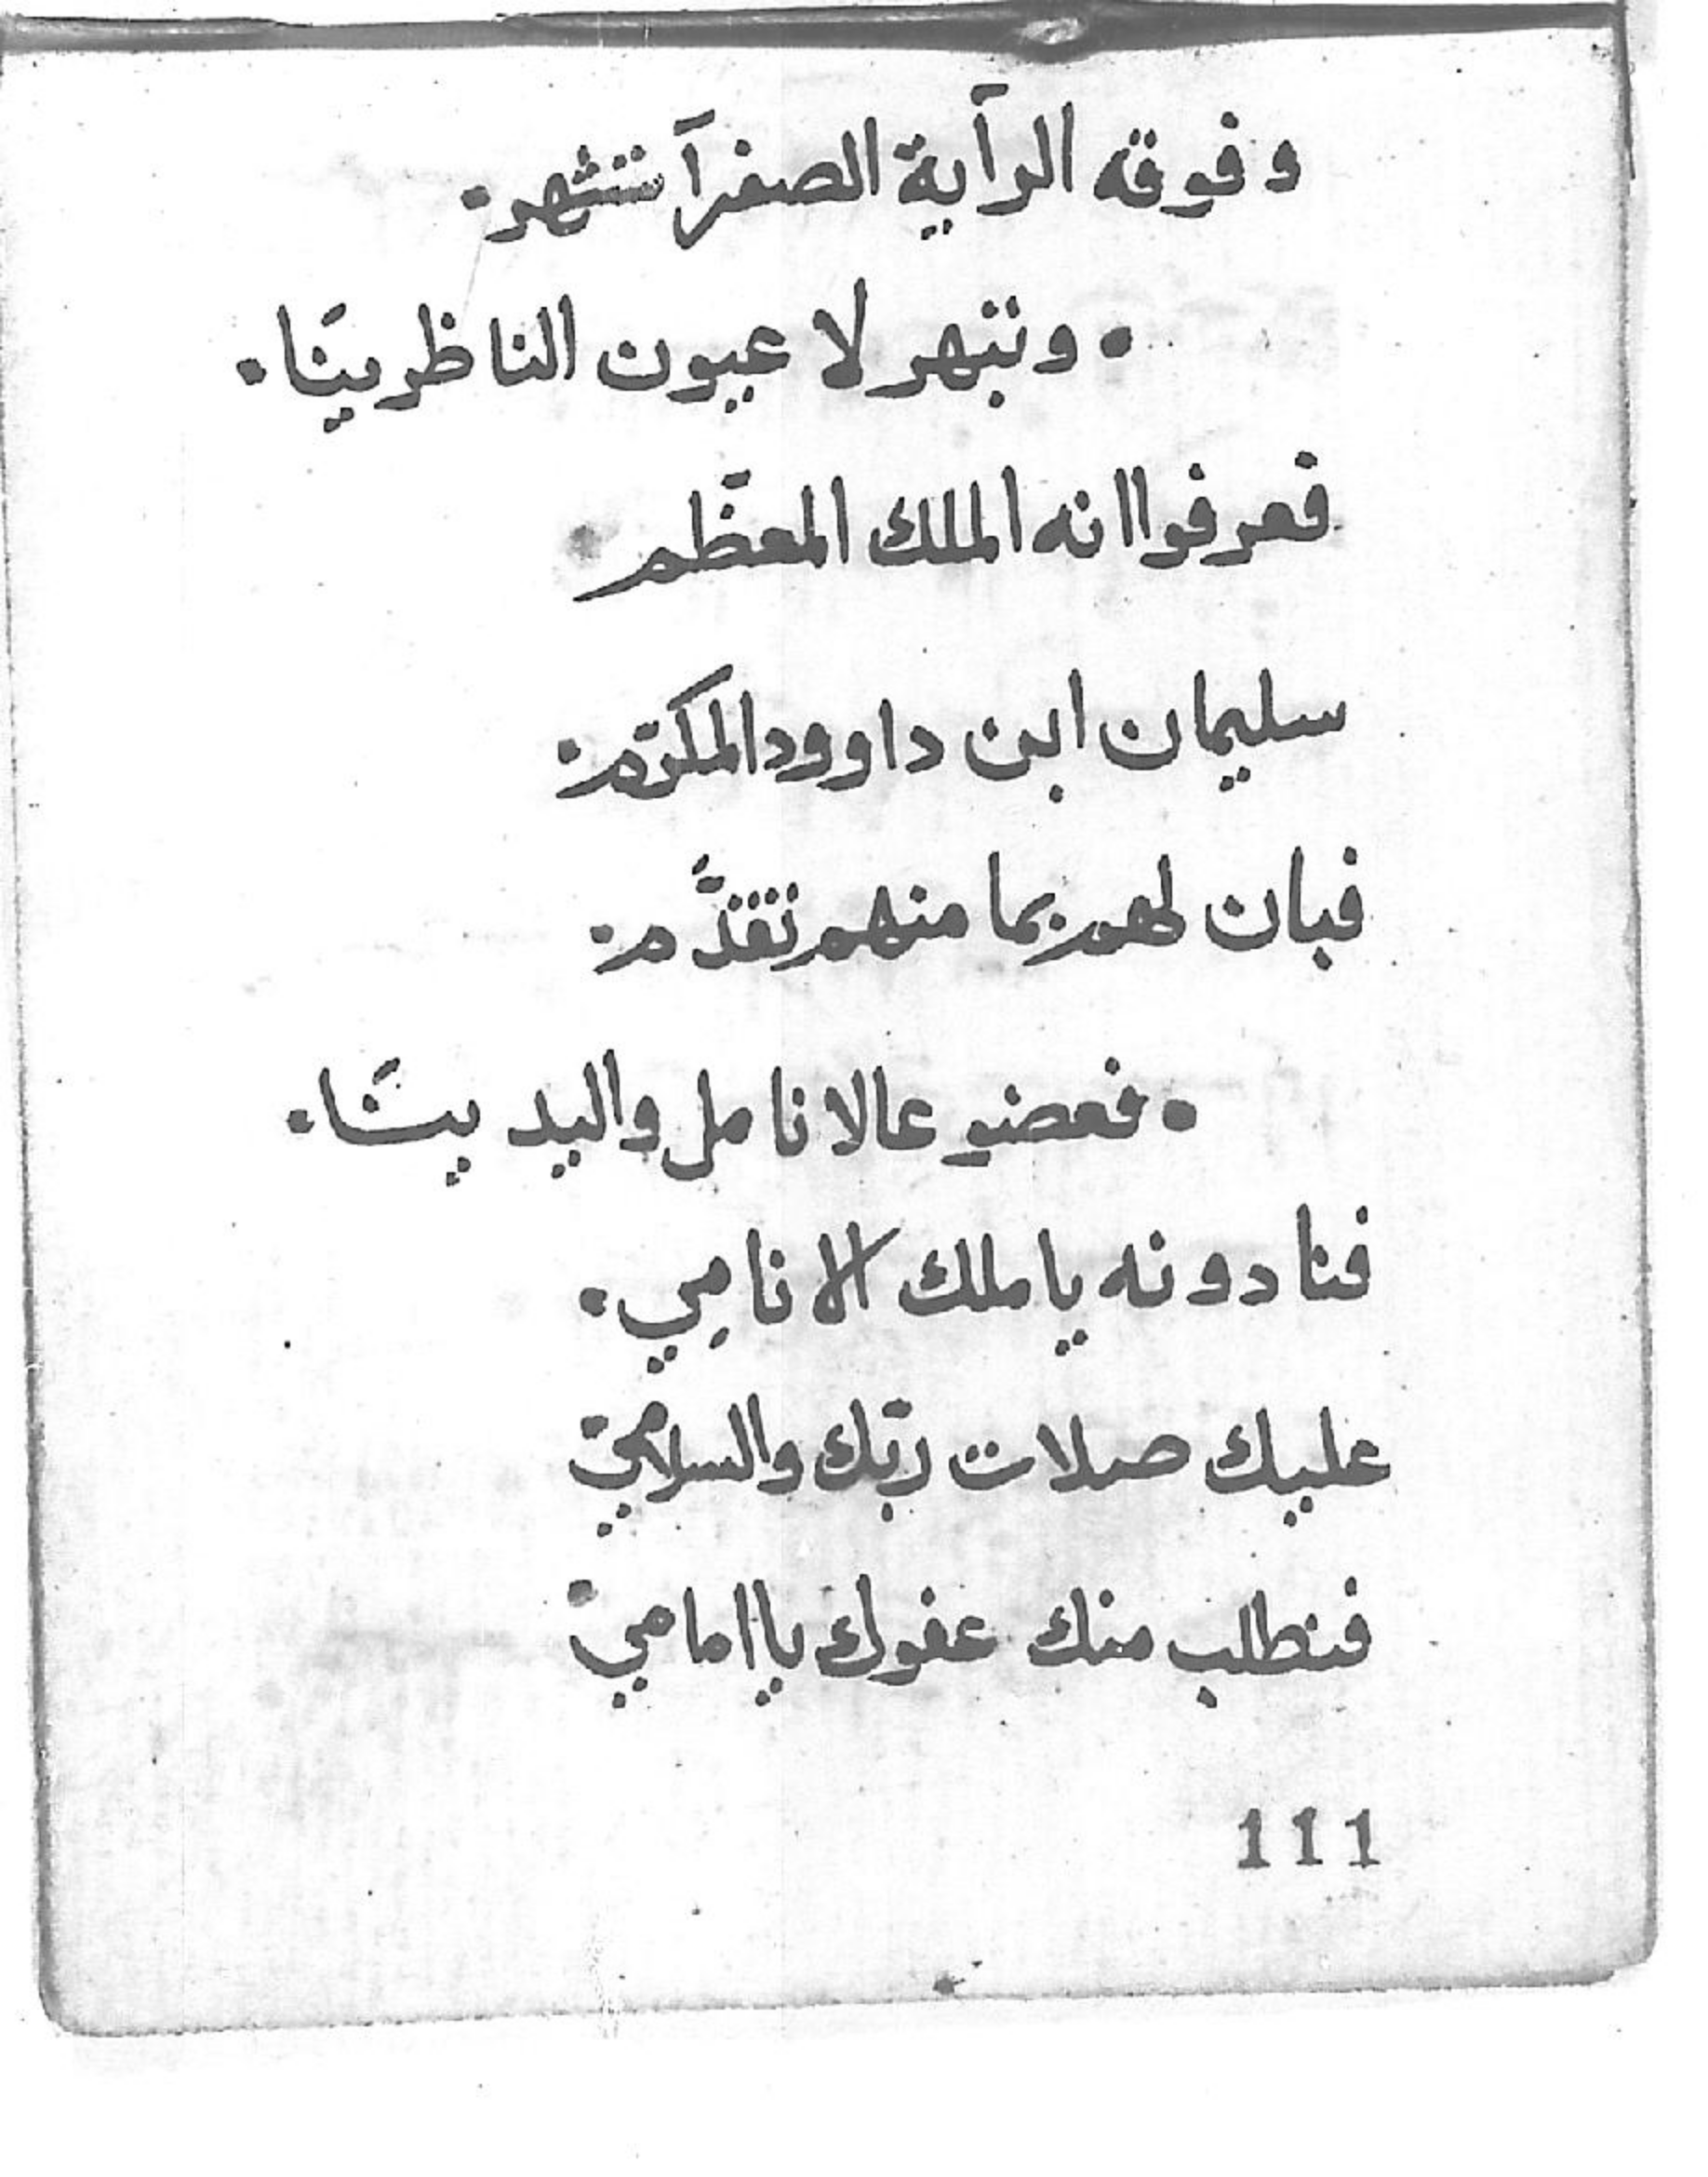 وفوقه الرآية الصفرآ تشهر٠
• وتبهر لا عيون الناظرينَا •
فعرفوا انه الملك المعظّم
سليمان ابن داوود المكرّم٠
فبان لهم بما منهم تقدَّم٠
• فعضو عالانامل واليدينَا •
فنادونه يا ملك الانامِي •
عليك صلات ربّك والسلامي
فنطلب منك عفوك يا امامي
111